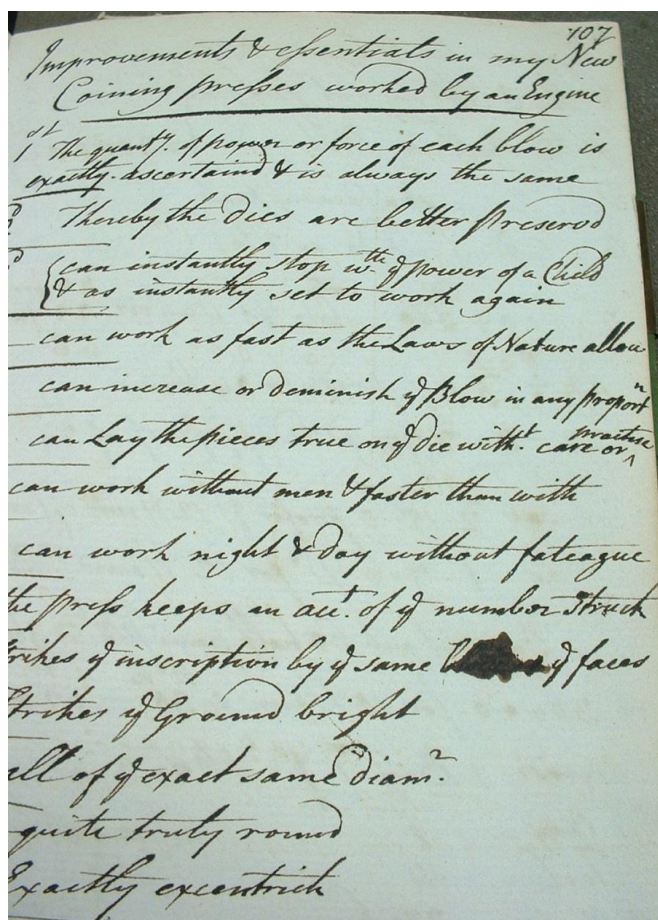 107
Improvements & essentials in my New
Coining presses worked by an Engine
1st The quanty. of power or force of each blow is
exactly ascertaind & is always the same
Thereby the Dies are better preservd
can instantly stop wth. ye power of a Child
& as instantly set to work again
can work as fast as the Laws of Nature allow
can increase or deminish ye Blow in any proportn
can Lay the pieces true on ye die witht. care or practice
can work without men & faster than with
can work night & day without fateague
the press keeps an acct. of ye number Struck
Strikes ye inscription by ye same ye faces
Strikes ye Ground bright
all of ye exact same diamr.
quite truly round
Exactly excentrick